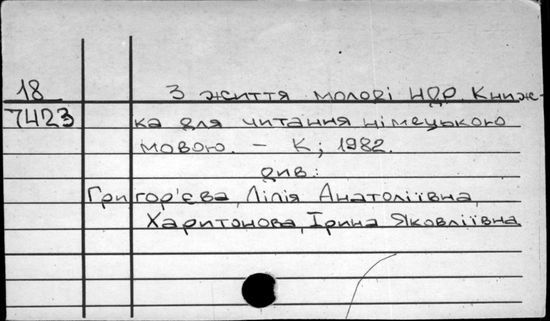 18
7423
З життя молоді НДР. Книж-
ка для читання німецькою
мовою. – К; 1982.
див.:
Григор'єва, Лілія Анатоліївна,
Харитонова, Ірина Яковліївна